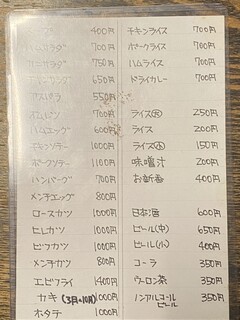 400円
ハムサラダ 700円
カニサラダ 750円
650円
アスパラ 550円
オムレツ 700円
ハムエッグ 600円
チキンソテー 1000円
ポークソテー 1100円
ハンバーグ 700円
メンチエッグ 800円
ロースカツ 1000円
ヒレカツ 1000円
ビフカツ 1000円
メンチカツ 800円
エビフライ 1400円
カキ(3月〜10月) 1000円
ホタテ 1000円
チキンライス 700円
ポークライス 700円
ハムライス 700円
ドライカレー 700円
ライス(大) 250円
ライス 200円
ライス(小) 150円
味噌汁 200円
お新香 400円
日本酒 600円
ビール(中) 650円
ビール(小) 400円
コーラ 350円
ウーロン茶 350円
ノンアルコールビール 350円